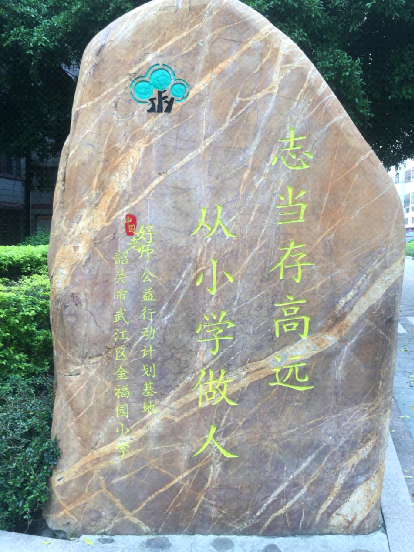 志当存高远
从小学做人
中国好老师 公益行动计划基地
韶关市武江区金福园小学